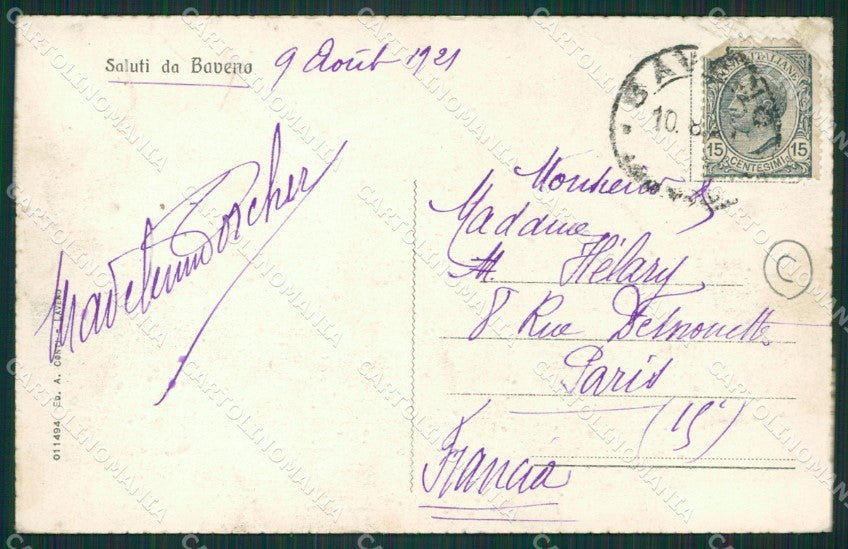 Saluti da Baveno 9 Août 1921
Madeleine Porcher
Monsieur &
Madame
M. Hélary
8 Rue Desnouettes
Paris
(15e)
Francia
BAVENO
10. 8.
POSTE ITALIANE
15 CENTESIMI 15
C
011494 Ed. A.
CARTOLINOMANIA